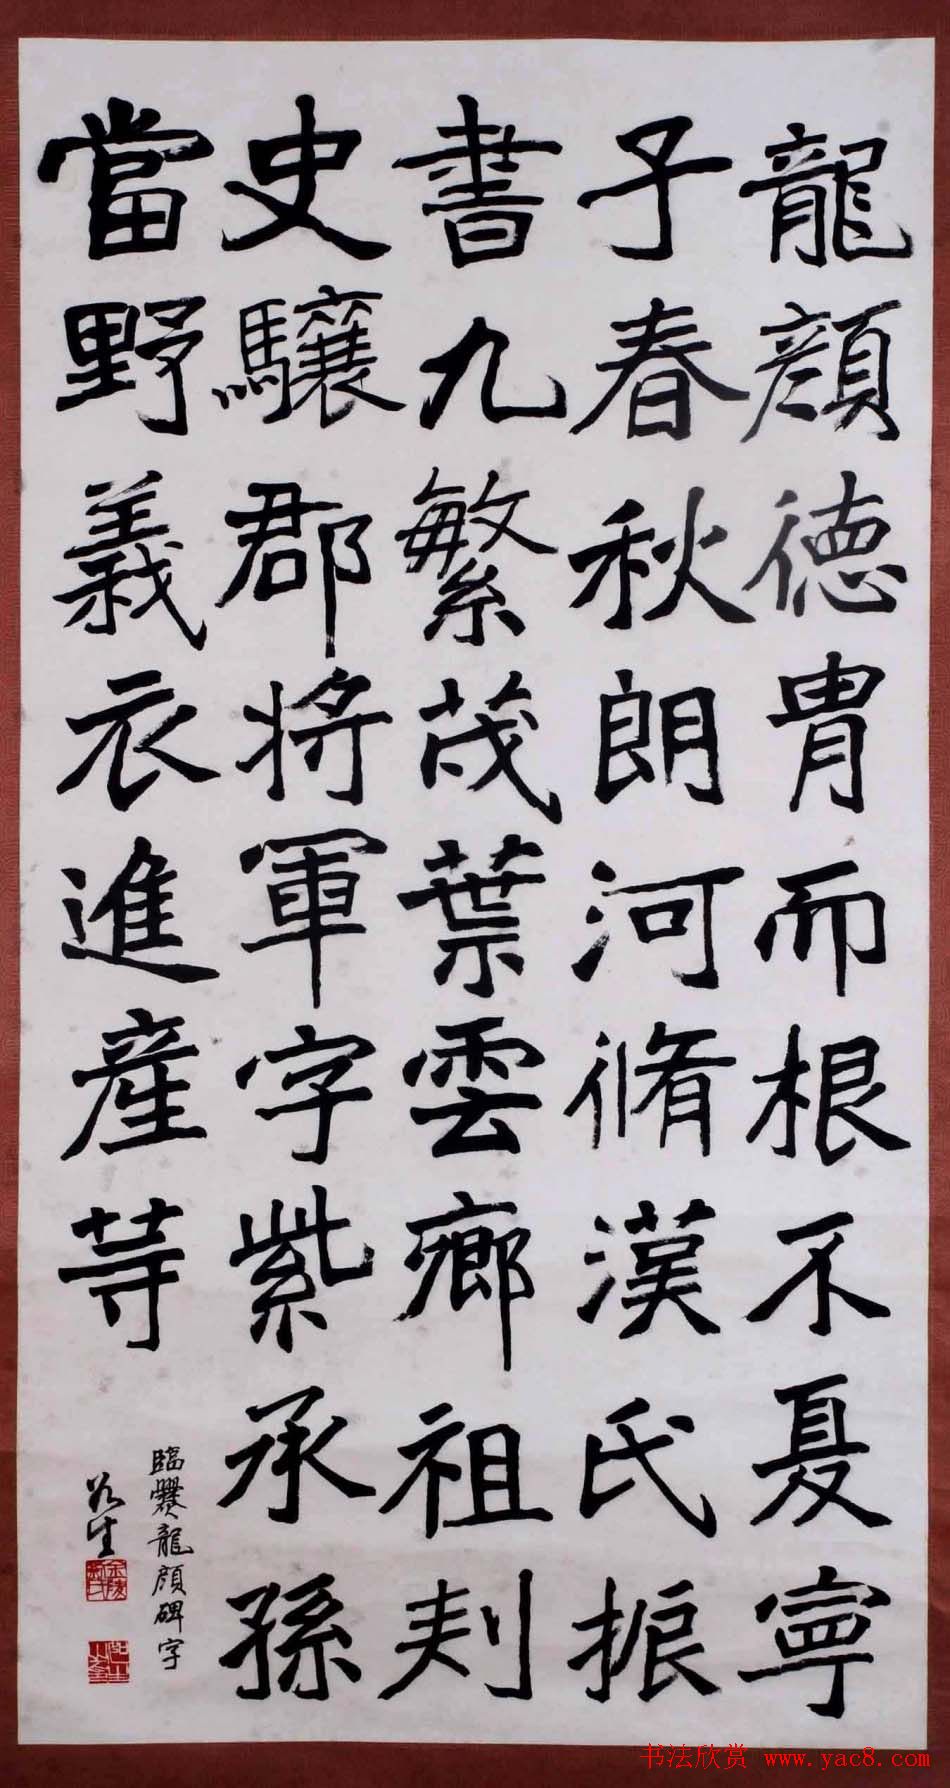 龍顔德胄而根不夏寧
子春秋朗河脩漢氏振
書九繁茂葉雲鄉祖刺
史驤郡將軍字紫承孫
當野義衣進産等
臨爨龍顔碑字
书法欣赏 www.yac8.com